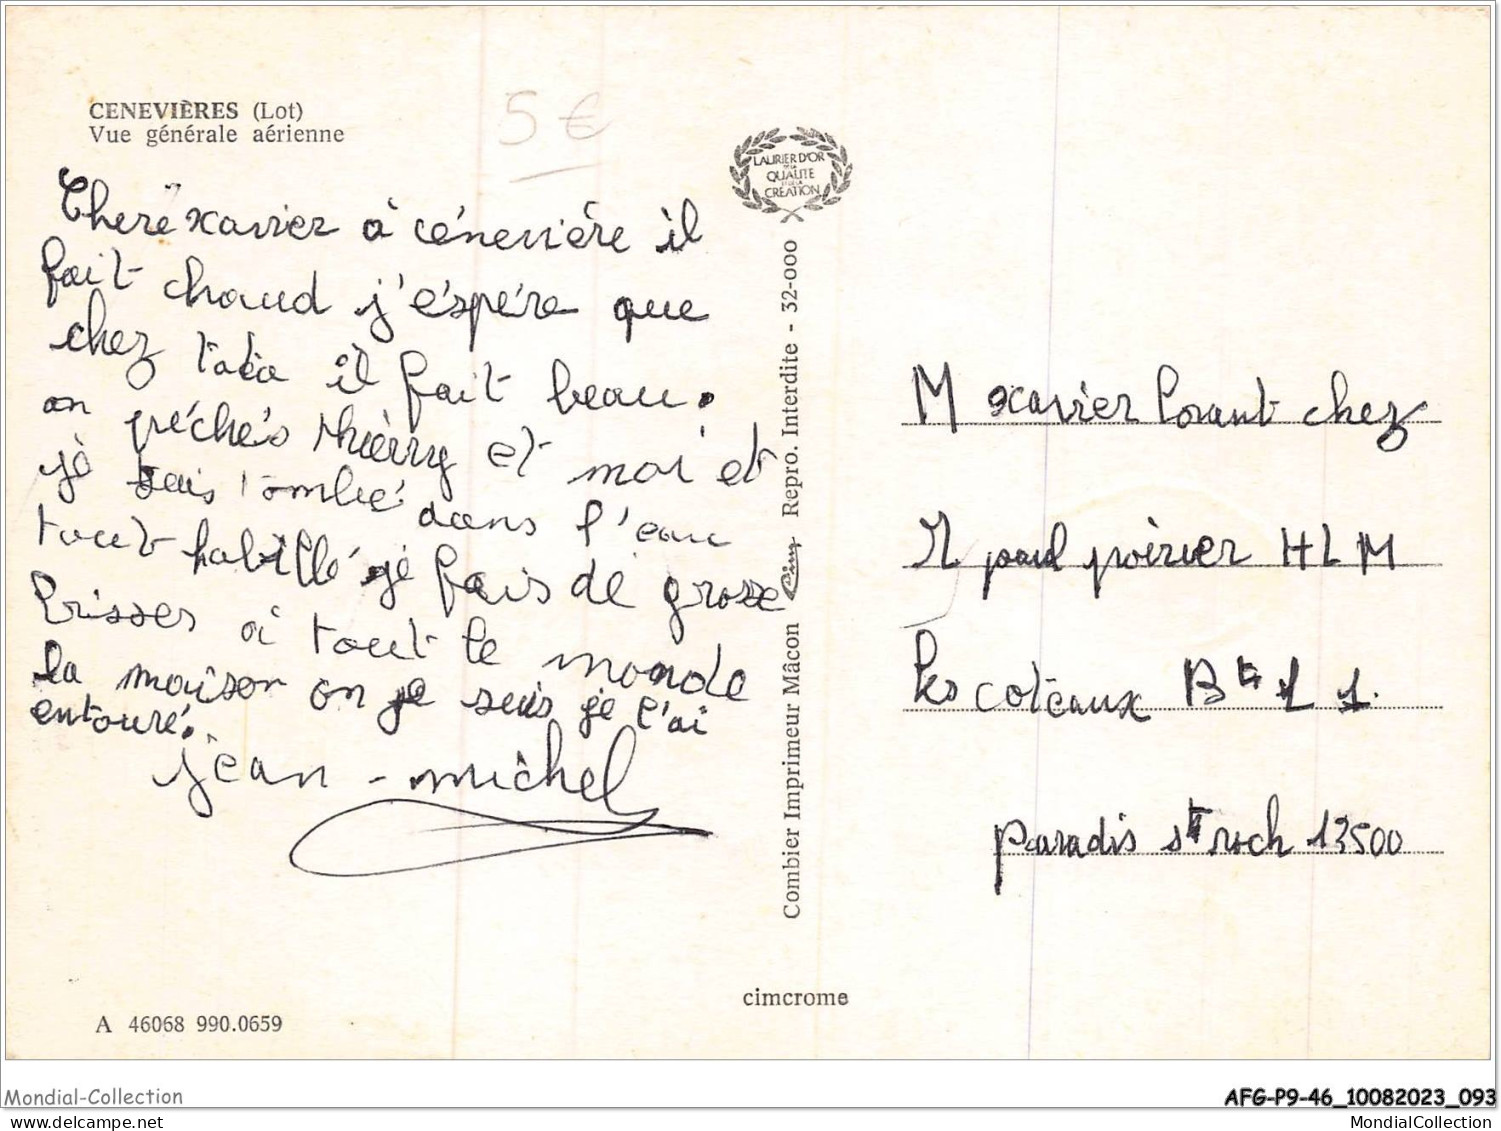 CENEVIÈRES (Lot)
Vue générale aérienne
5 €
LAURIER D'OR
DE LA
QUALITE
ET DE LA
CREATION
Cheré xavier à cénevière il
fait chaud j'éspére que
chez tata il fait beau.
on péchés thièrry et moi et
jé suis tombé dans l'eau
tout habillé je fais dé grosse
brisses à tout le monde
la maison on je suis je l'ai
entouré.
jean-michel
Combier Imprimeur Mâcon Cim Repro. Interdite - 32-000
M xavier Lorant chez
paul poirier HLM
les coteaux Bt 11.
paradis st roch 13500
cimcrome
A 46068 990.0659
Mondial-Collection
AFG-P9-46_10082023_093
MondialCollection